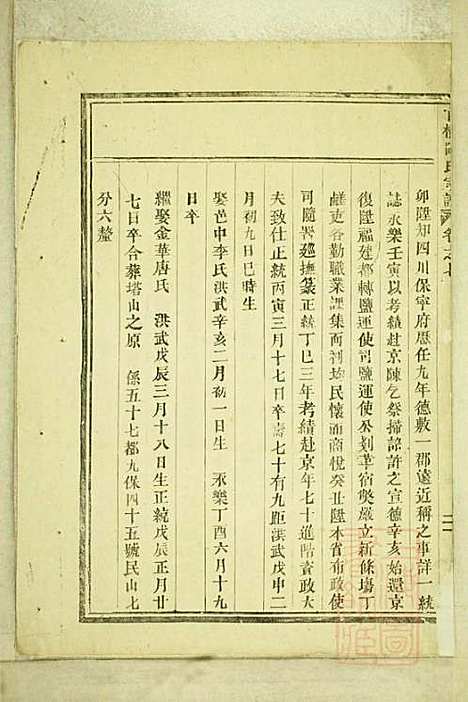 氏宗譜 卷之七
卯陞知四川保寧府歷任九年德敷一郡遠近稱之事詳一統
誌永樂壬寅以考績赴京陳乞祭掃詔許之宣德辛亥始還京
復陞福建都轉鹽運使司鹽運使公剗革宿獘嚴立新條塲丁
醝吏各勤職業課集而利均民懷商悅癸丑陞本省布政使
司隨署廵撫篆正統丁巳三年考績赴京年七十進階資政大
夫致仕正統丙寅三月十七日卒壽七十有九距洪武戊申二
月初九日巳時生
娶邑中李氏洪武辛亥二月初一日生 永樂丁酉六月十九
日卒
繼娶金華唐氏 洪武戊辰三月十八日生正統戊辰正月廿
七日卒合葬塔山之原 係五十七都九保四十五號民山七
分六釐